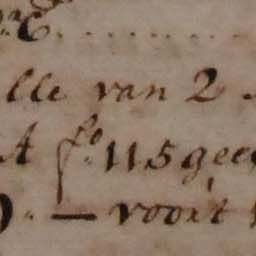 lle van 2
A fo. 115 gee
– voort